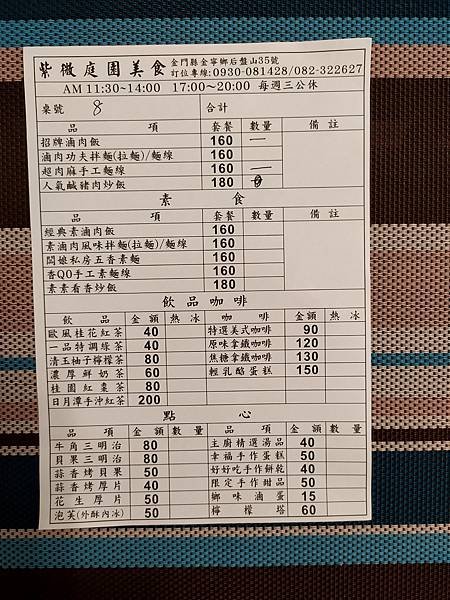 紫微庭園美食
金門縣金寧鄉后盤山35號
訂位專線:0930-081428/082-322627
AM 11:30~14:00 17:00~20:00 每週三公休
桌號 8 合計
品項 套餐 數量 備註
招牌滷肉飯 160 一
滷肉功夫拌麵(拉麵)/麵線 160
超肉麻手工麵線 160 一
人氣鹹豬肉炒飯 180
素食
品項 套餐 數量 備註
經典素滷肉飯 160
素滷肉風味拌麵(拉麵)/麵線 160
闆娘私房五香素麵 160
香QQ手工素麵線 160
素素看香炒飯 180
飲品咖啡
飲品 金額 熱 冰 咖啡 金額 熱 冰
歐風桂花紅茶 40 特選美式咖啡 90
一品特調綠茶 40 原味拿鐵咖啡 120
清玉柚子檸檬茶 80 焦糖拿鐵咖啡 130
濃厚鮮奶茶 60 輕乳酪蛋糕 150
桂圓紅棗茶 80
日月潭手沖紅茶 200
點心
品項 金額 數量 品項 金額 數量
牛角三明治 80 主廚精選湯品 40
貝果三明治 80 幸福手作蛋糕 50
蒜香烤貝果 50 好好吃手作餅乾 40
蒜香烤厚片 40 限定手作甜品 50
花生厚片 50 鄉味滷蛋 15
泡芙(外酥內冰) 50 檸檬塔 60